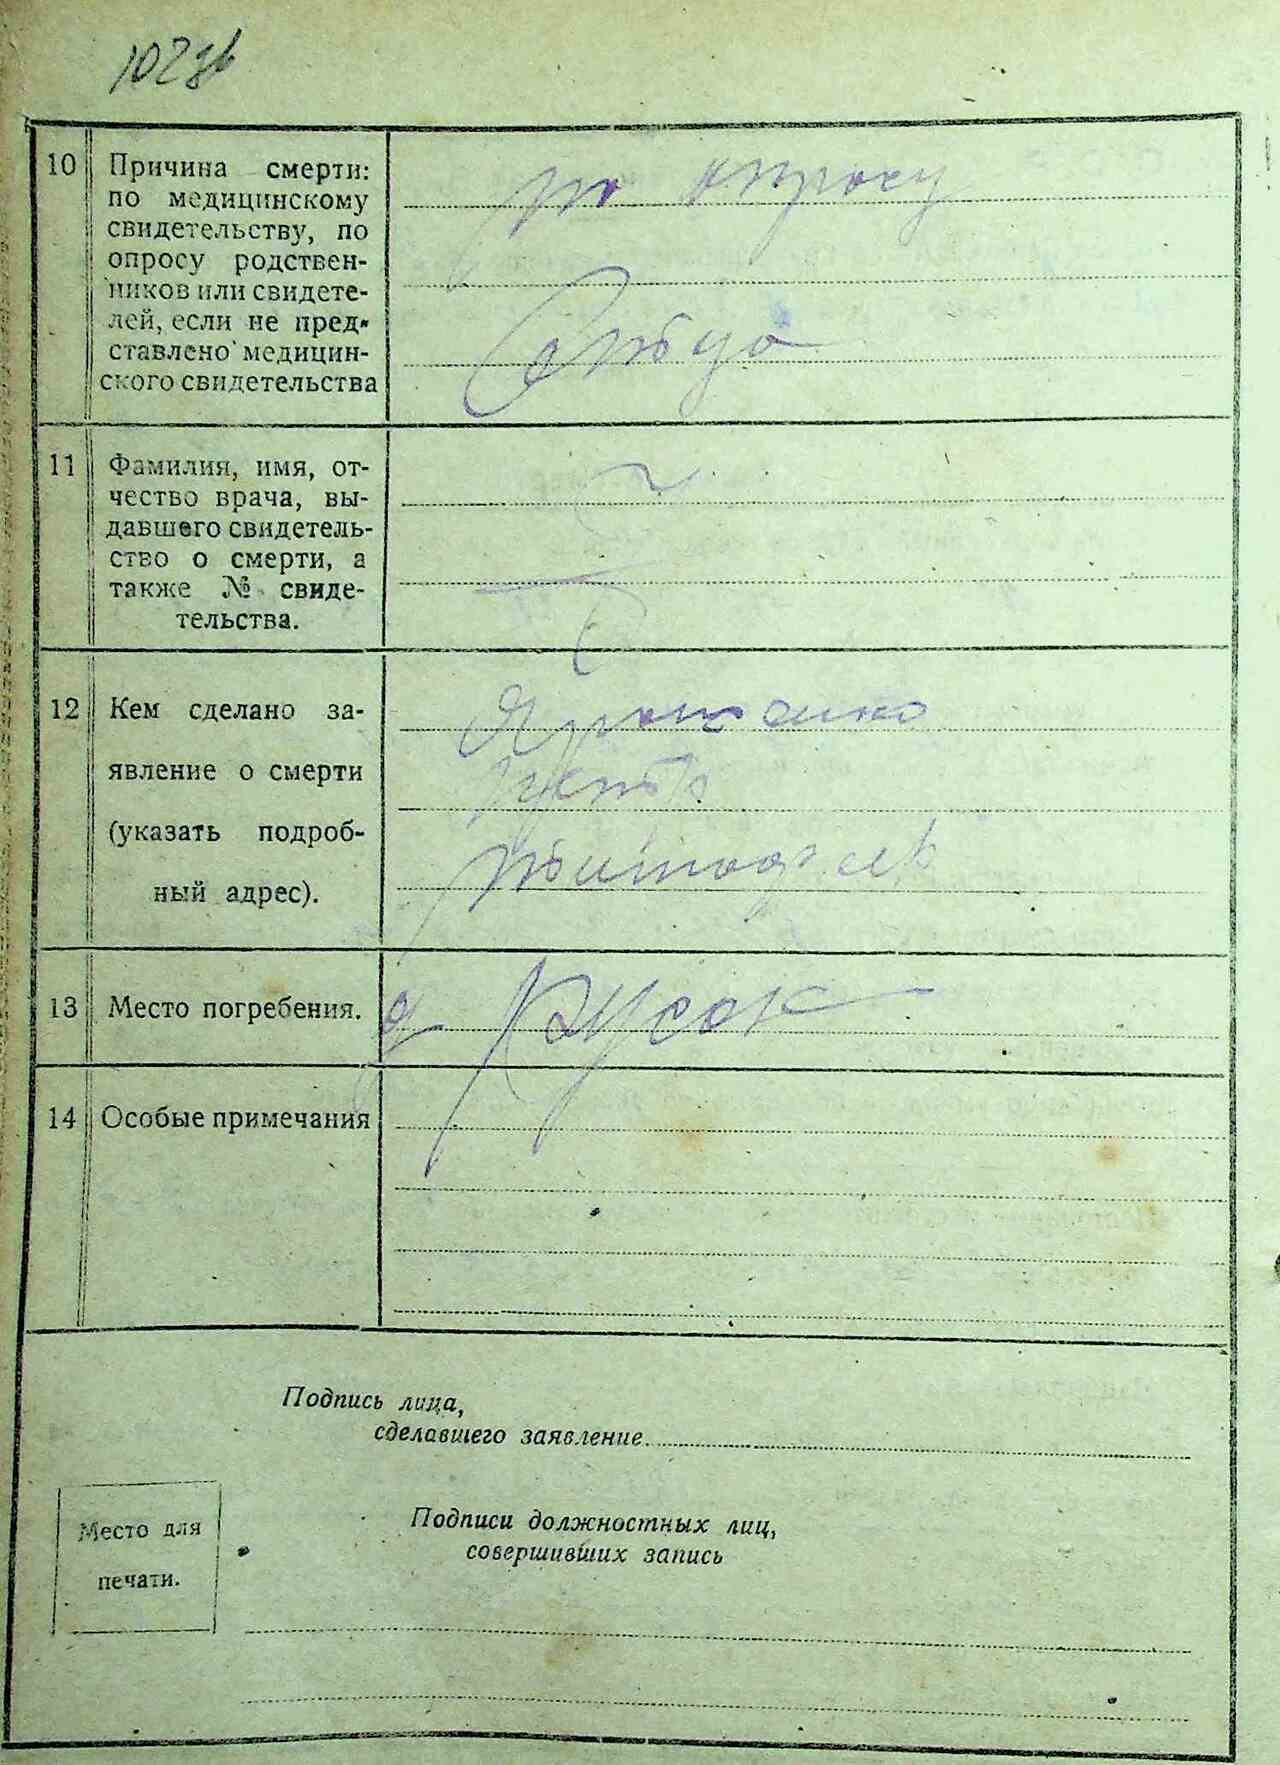 102зв
10 Причина смерти:
по медицинскому
свидетельству, по
опросу родствен-
ников или свидете-
лей, если не пред-
ставлено медицин-
ского свидетельства
по опросу
Отца
11 Фамилия, имя, от-
чество врача, вы-
давшего свидетель-
ство о смерти, а
также № свиде-
тельства.
12 Кем сделано за-
явление о смерти
(указать подроб-
ный адрес).
13 Место погребения.
14 Особые примечания
Подпись лица,
сделавшего заявление
Место для
печати.
Подписи должностных лиц,
совершивших запись